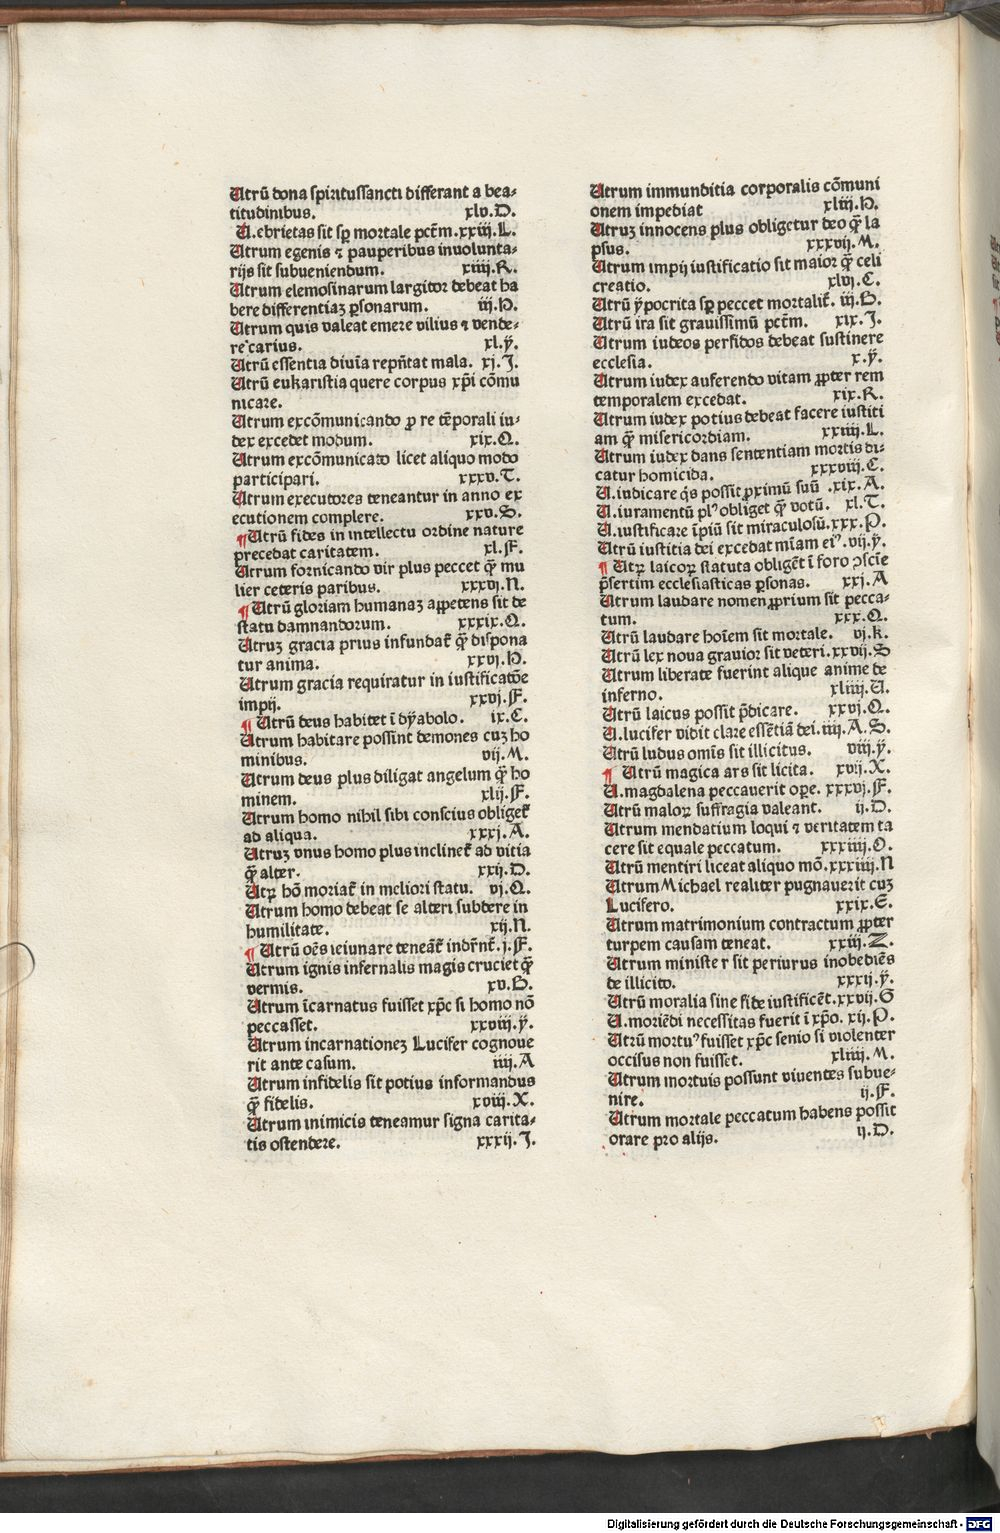 Utrū dona spiritussancti differant a bea-
titudinibus. xlv.D.
U.ebrietas sit sꝑ mortale pctm̄.xxiii.L.
Utrum egenis ⁊ pauperibus inuolunta-
rijs sit subueniendum. xiiii.R.
Utrum elemosinarum largitor debeat ha
bere differentiaz ꝑsonarum. iii.H.
Utrum quis valeat emere vilius ⁊ vende-
re carius. xl.ÿ.
Utrū essentia diuīa repn̄tat mala. xj.J.
Utrū eukaristia quere corpus xp̄i cōmu
nicare.
Utrum excōmunicando ꝓ re tēporali iu-
dex excedet modum. xix.Q.
Utrum excōmunicato licet aliquo modo
participari. xxxv.T.
Utrum executores teneantur in anno ex
ecutionem complere. xxv.S.
¶ Utrū fides in intellectu ordine nature
precedat caritatem. xl.F.
Utrum fornicando vir plus peccet q̄ꝫ mu
lier ceteris paribus. xxxvj.N.
¶ Utrū gloriam humanaʒ appetens sit de
statu damnandorum. xxxix.Q.
Utruʒ gracia prius infundat᷑ q̄ꝫ dispona
tur anima. xxvj.H.
Utrum gracia requiratur in iustificatōe
impij. xxvj.F.
¶ Utrū deus habitet ī dÿabolo. ix.C.
Utrum habitare possint demones cuʒ ho
minibus. vij.M.
Utrum deus plus diligat angelum q̄ꝫ ho
minem. xlij.F.
Utrum homo nihil sibi conscius obliget᷑
ad aliqua. xxxj.A.
Utruʒ vnus homo plus inclinet᷑ ad vitia
q̄ꝫ alter. xxij.D.
Utꝝ hō moriat᷑ in meliori statu. vj.Q.
Utrum homo debeat se alteri subdere in
humilitate. xij.N.
¶ Utrū oēs ieiunare teneāt᷑ indr̄nt᷑.j.F.
Utrum ignis infernalis magis cruciet q̄ꝫ
vermis. xv.B.
Utrum īcarnatus fuisset xp̄c si homo nō
peccasset. xxviii.ÿ.
Utrum incarnationeʒ Lucifer cognoue
rit ante casum. iiii.A
Utrum infidelis sit potius informandus
q̄ꝫ fidelis. xviii.X.
Utrum inimicis teneamur signa carita-
tis ostendere. xxxij.J.
Utrum immunditia corporalis cōmuni
onem impediat xliii.H.
Utruʒ innocens plus obligetur deo q̄ꝫ la
psus. xxxvij.M.
Utrum impij iustificatio sit maior q̄ꝫ celi
creatio. xlvj.C.
Utrū ÿpocrita sꝑ peccet mortalit᷑. iii.B.
Utrū ira sit grauissimū pctm̄. xix.J.
Utrum iudeos perfidos debeat sustinere
ecclesia. x.ÿ.
Utrum iudex auferendo vitam ꝓpter rem
temporalem excedat. xix.R.
Utrum iudex potius debeat facere iustiti
am q̄ꝫ misericordiam. xxiiii.L.
Utrum iudex dans sententiam mortis di-
catur homicida. xxxviii.C.
U.iudicare q̄s possit ꝓximū suū .xix.A.
U.iuramentū plꝰ obliget q̄ꝫ votū. xl.T.
U.iustificare īpiū sit miraculosū.xxx.P.
Utrū iustitia dei excedat mīam eiꝰ.vij.ÿ.
¶ Utꝝ laicoꝝ statuta obligēt ī foro ↄscīe
p̄sertim ecclesiasticas ꝑsonas. xxj.A
Utrum laudare nomen ꝓprium sit pecca-
tum. xxx.Q.
Utrū laudare hoīem sit mortale. vj.k.
Utrū lex noua grauior sit veteri.xxvij.S
Utrum liberate fuerint alique anime de
inferno. xliiii.U.
Utrū laicus possit p̄dicare. xxvj.Q.
U.lucifer vidit clare essētiā dei.iiii.A.S.
Utrū ludus omīs sit illicitus. viii.ÿ.
¶ Utrū magica ars sit licita. xvij.X.
U.magdalena peccauerit oꝑe. xxxvj.F.
Utrū maloꝝ suffragia valeant. ij.D.
Utrum mendatium loqui ⁊ veritatem ta
cere sit equale peccatum. xxxiiii.O.
Utrū mentiri liceat aliquo mō.xxxiiii.N
Utrum Michael realiter pugnauerit cuʒ
Lucifero. xxix.E.
Utrum matrimonium contractum ꝓpter
turpem causam teneat. xxiii.Z.
Utrum minister sit periurus inobediēs
de illicito. xxxij.ÿ.
Utrū moralia sine fide iustificēt.xxvij.G
U.moriēdi necessitas fuerit ī xp̄o. xij.P.
Utrū mortuꝰ fuisset xp̄c senio si violenter
occisus non fuisset. xliiii.M.
Utrum mortuis possunt viuentes subue-
nire. ij.F.
Utrum mortale peccatum habens possit
orare pro alijs. ij.D.
Digitalisierung gefördert durch die Deutsche Forschungsgemeinschaft - DFG